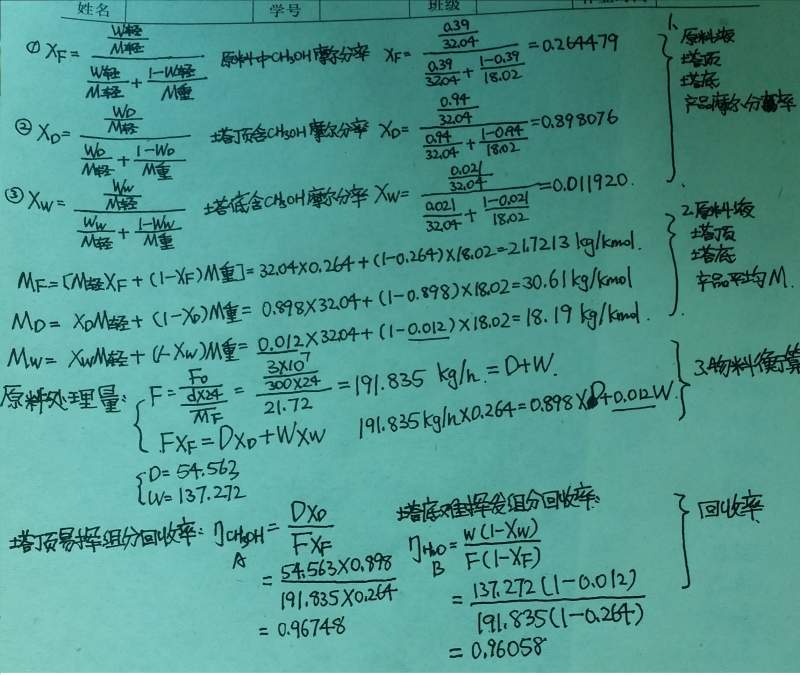 姓名 学号 班级
① XF = (W轻/M轻)/(W轻/M轻 + (1-W轻)/M重) 原料中CH3OH摩尔分率 XF = (0.39/32.04)/(0.39/32.04 + (1-0.39)/18.02) = 0.264479
1、原料液
塔顶
塔底
产品摩尔分率
② XD = (WD/M轻)/(WD/M轻 + (1-WD)/M重) 塔顶含CH3OH摩尔分率 XD = (0.94/32.04)/(0.94/32.04 + (1-0.94)/18.02) = 0.898076
③ XW = (WW/M轻)/(WW/M轻 + (1-WW)/M重) 塔底含CH3OH摩尔分率 XW = (0.021/32.04)/(0.021/32.04 + (1-0.021)/18.02) = 0.011920.
MF = [M轻XF + (1-XF)M重] = 32.04×0.264 + (1-0.264)×18.02 = 21.7213 kg/kmol.
MD = XDM轻 + (1-XD)M重 = 0.898×32.04 + (1-0.898)×18.02 = 30.61 kg/kmol
MW = XWM轻 + (1-XW)M重 = 0.012×32.04 + (1-0.012)×18.02 = 18.19 kg/kmol.
2.原料液
塔顶
塔底
产品平均M.
原料处理量: F = (F0/(d×24))/MF = (3×10^7/(300×24))/21.72 = 191.835 kg/h. = D+W.
FXF = DXD + WXW 191.835kg/h×0.264 = 0.898×D+0.012W
3.物料衡算
D = 54.563
W = 137.272
塔顶易挥组分回收率: ηCH3OH A = DXD/FXF
= (54.563×0.898)/(191.835×0.264)
= 0.96748
塔底难挥发组分回收率:
ηH2O B = W(1-XW)/F(1-XF)
= 137.272(1-0.012)/191.835(1-0.264)
= 0.96058
回收率